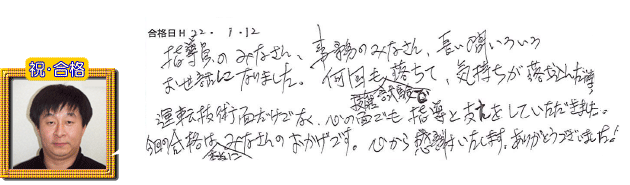 祝・合格
合格日 H 22. 1. 12
指導員のみなさん、事務のみなさん、長い間いろいろ
お世話になりました。何回も落ちて、気持ちが落ちこんだ時
技能試験で
運転技術面だけでなく、心の面でも指導と支えをしていただきました。
今回の合格はみなさんのおかげです。心から感謝いたします。ありがとうございました!